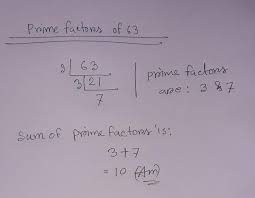 Prime factors of 63
3 63
3 21
7
prime factors
are: 3 & 7
Sum of prime factors is:
3+7
= 10 (Ans)